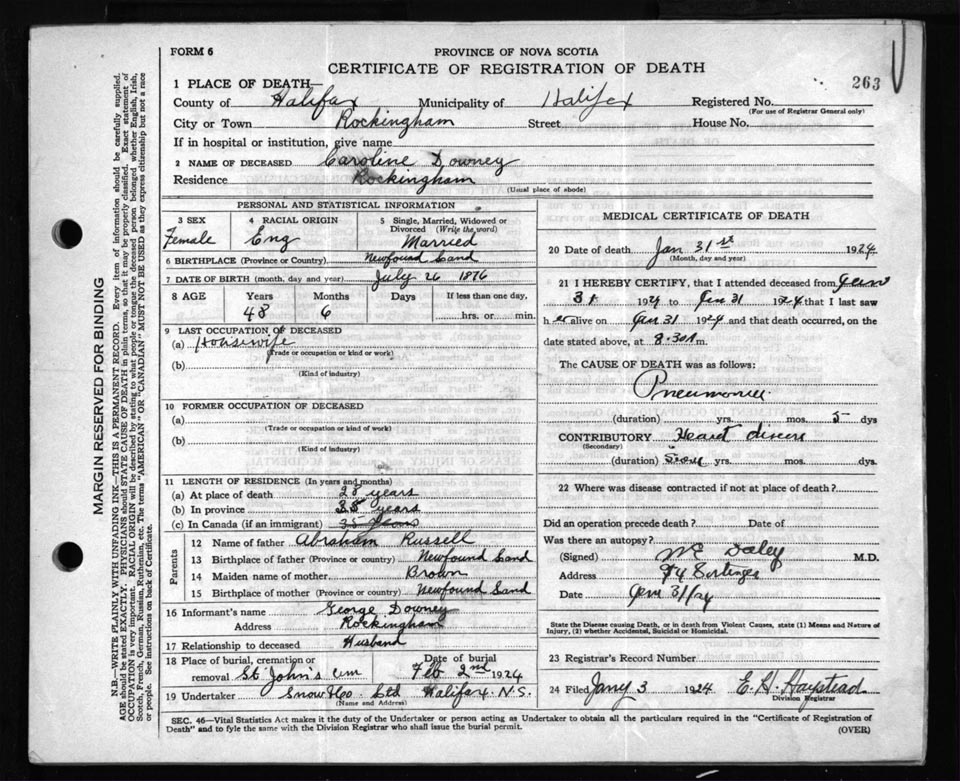 FORM 6
PROVINCE OF NOVA SCOTIA
CERTIFICATE OF REGISTRATION OF DEATH
263
1 PLACE OF DEATH—
County of Halifax Municipality of Halifax Registered No.
(For use of Registrar General only)
City or Town Rockingham Street House No.
If in hospital or institution, give name
2 NAME OF DECEASED Caroline Downey
Residence Rockingham
(Usual place of abode)
PERSONAL AND STATISTICAL INFORMATION
3 SEX
Female
4 RACIAL ORIGIN
Eng
5 Single, Married, Widowed or
Divorced (Write the word)
Married
6 BIRTHPLACE (Province or Country) Newfound Land
7 DATE OF BIRTH (month, day and year) July 26 1876
8 AGE Years Months Days If less than one day,
48 6 hrs. or min.
9 LAST OCCUPATION OF DECEASED
(a) Housewife
(Trade or occupation or kind of work)
(b)
(Kind of industry)
10 FORMER OCCUPATION OF DECEASED
(a)
(Trade or occupation or kind of work)
(b)
(Kind of industry)
11 LENGTH OF RESIDENCE (In years and months)
(a) At place of death 28 years
(b) In province 35 years
(c) In Canada (if an immigrant) 35 years
Parents
12 Name of father Abraham Russell
13 Birthplace of father (Province or country) Newfound Land
14 Maiden name of mother Brown
15 Birthplace of mother (Province or country) Newfound Land
16 Informant's name George Downey
Address Rockingham
17 Relationship to deceased Husband
18 Place of burial, cremation or Date of burial
removal St John's cem Feb 2nd 1924
19 Undertaker Snow & Co. Ltd Halifax. N.S.
(Name and Address)
MEDICAL CERTIFICATE OF DEATH
20 Date of death Jan 31st 1924
(Month, day and year)
21 I HEREBY CERTIFY, that I attended deceased from Jan
31 1924 to Jan 31 1924 that I last saw
h er alive on Jan 31 1924 and that death occurred, on the
date stated above, at 8.30 m.
The CAUSE OF DEATH was as follows:
Pneumonia
(duration) yrs. mos. 5 dys
CONTRIBUTORY Heart disease
(Secondary)
(duration) yrs. mos. dys.
22 Where was disease contracted if not at place of death?
Did an operation precede death? Date of
Was there an autopsy?
(Signed) M.D.
Address
Date Jan 31/24
State the Disease causing Death, or in death from Violent Causes, state (1) Means and Nature of
Injury, (2) whether Accidental, Suicidal or Homicidal.
23 Registrar's Record Number
24 Filed Jany 3 1924 E. H.
Division Registrar
SEC. 46—Vital Statistics Act makes it the duty of the Undertaker or person acting as Undertaker to obtain all the particulars required in the "Certificate of Registration of
Death" and to fyle the same with the Division Registrar who shall issue the burial permit.
(OVER)
MARGIN RESERVED FOR BINDING
N.B.—WRITE PLAINLY WITH UNFADING INK—THIS IS A PERMANENT RECORD. Every item of information should be carefully supplied.
AGE should be stated EXACTLY. PHYSICIANS should STATE CAUSE OF DEATH in plain terms, so that it may be properly classified. Exact statement of
OCCUPATION is very important. RACIAL ORIGIN will be described by stating to what people or tongue the deceased person belonged, whether English, Irish,
Scotch, French, German, Russian, Ruthenian, etc. The terms "AMERICAN" OR "CANADIAN" MUST NOT BE USED as they express citizenship but not a race
or people. See instructions on back of Certificate.